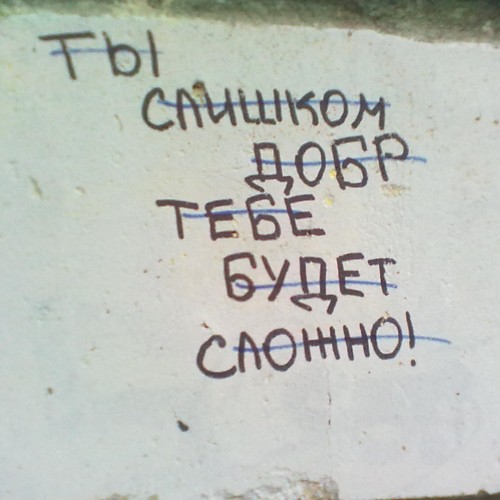 ТЫ
СЛИШКОМ
ДОБР
ТЕБЕ
БУДЕТ
СЛОЖНО!